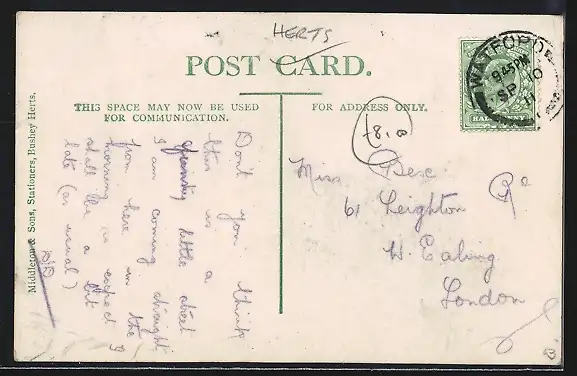 HERTS
POST CARD.
THIS SPACE MAY NOW BE USED
FOR COMMUNICATION.
FOR ADDRESS ONLY.
WATFORD
9.45PM
SP 10
11
HALFPENNY
£8.00
Don't you think
this is a
little street
I am coming straight
from here in the
morning so expect I
shall be a bit
late (as usual)
Miss Bex
61 Leighton Rd
W. Ealing
London
Middleton & Sons, Stationers, Bushey Herts.